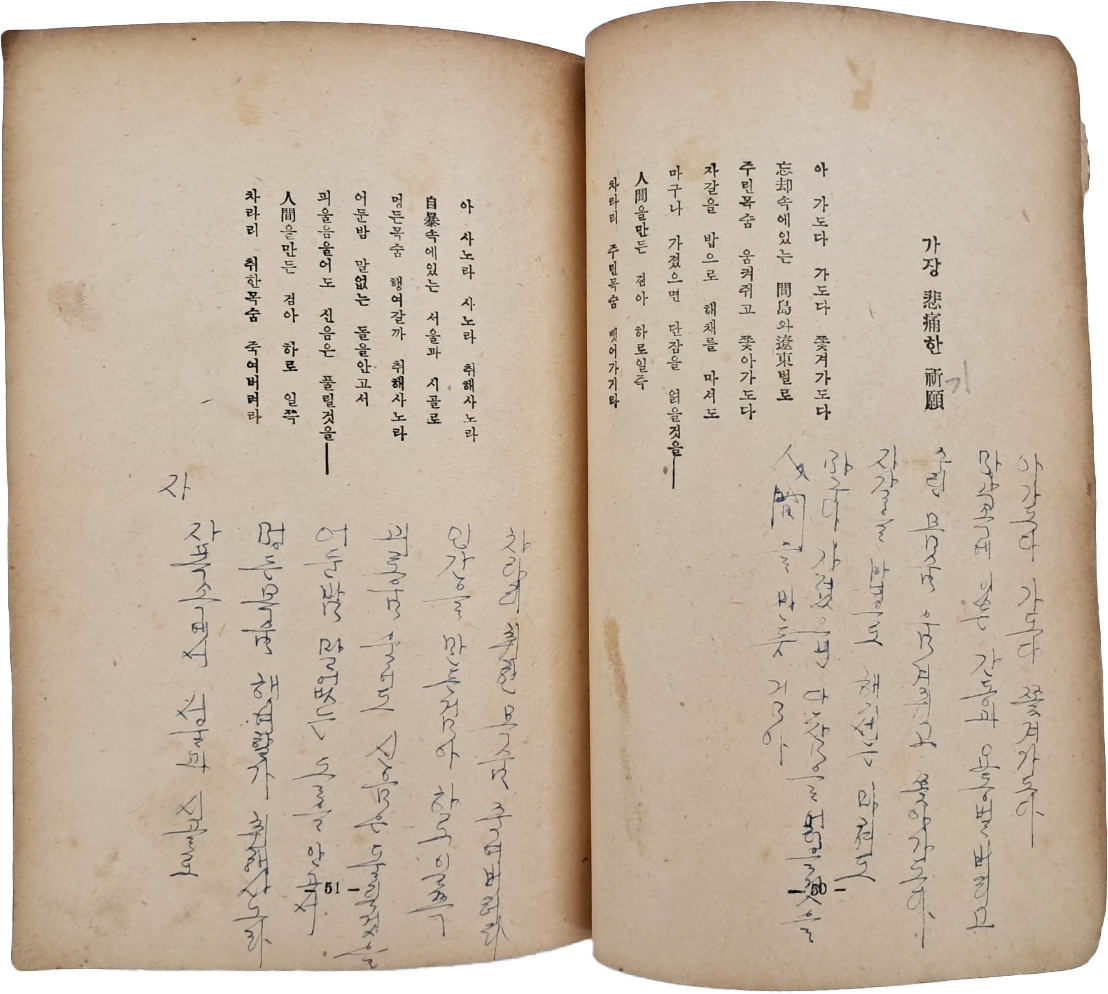 가장 悲痛한 祈願
기
아 가도다 가도다 쫓겨가도다
忘却속에있는 間島와遼東벌로
주린목숨 움켜쥐고 쫓아가도다
자갈을 밥으로 해채를 마셔도
마구나 가졌으면 단잠을 얽을것을—
人間을만든 검아 하로일즉
차라리 주린목숨 뺏어가거라
아가도다 가도다 쫓겨가도다
망각속에 있는 간동과 요동벌버리고
주린 목숨 움켜쥐고 쫓아가도다
자갈을 밥으로 해선는 마셔도
마구나 가졌으면 단잠을 얽을것을
人間을 만든 검아
— 50 —
아 사노라 사노라 취해사노라
自暴속에있는 서울과 시골로
멍든목숨 행여갈까 취해사노라
어둔밤 말없는 돌을안고서
피울음울어도 신음은 풀릴것을—
人間을만든 검아 하로 일쯕
차라리 취한목숨 죽여버려라
차라리 취한 목숨 죽여버려라
인간을 만든검아 하로 일쯕
피롱음 울어도 신음은 풀릴것을
어둔밤 말없는 도를 안고서
멍든목숨 해여갈가 취해사노라
자폭속에서 서울과 시골로
자
— 51 —